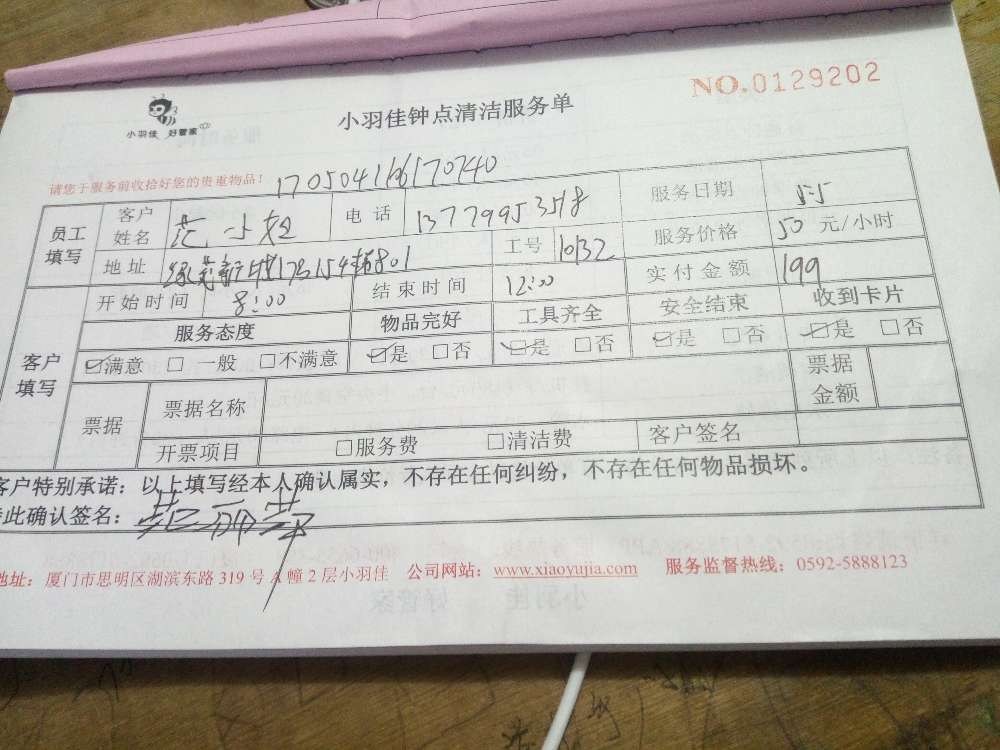 NO.0129202
小羽佳 好管家
小羽佳钟点清洁服务单
请您于服务前收拾好您的贵重物品!
员工填写 客户姓名 范小姐 电话 13779953518 服务日期 5.5
地址 17号154梯801 工号 1032 服务价格 50 元/小时
客户填写 开始时间 8:00 结束时间 12:00 实付金额 199
服务态度 物品完好 工具齐全 安全结束 收到卡片
☑满意 □ 一般 □不满意 ☑是 □否 ☑是 □否 ☑是 □否 ☑是 □否
票据 票据名称 票据金额
开票项目 □服务费 □清洁费 客户签名
客户特别承诺:以上填写经本人确认属实,不存在任何纠纷,不存在任何物品损坏。
此确认签名:
地址:厦门市思明区湖滨东路 319 号 A 幢 2 层小羽佳 公司网站:www.xiaoyujia.com 服务监督热线:0592-5888123